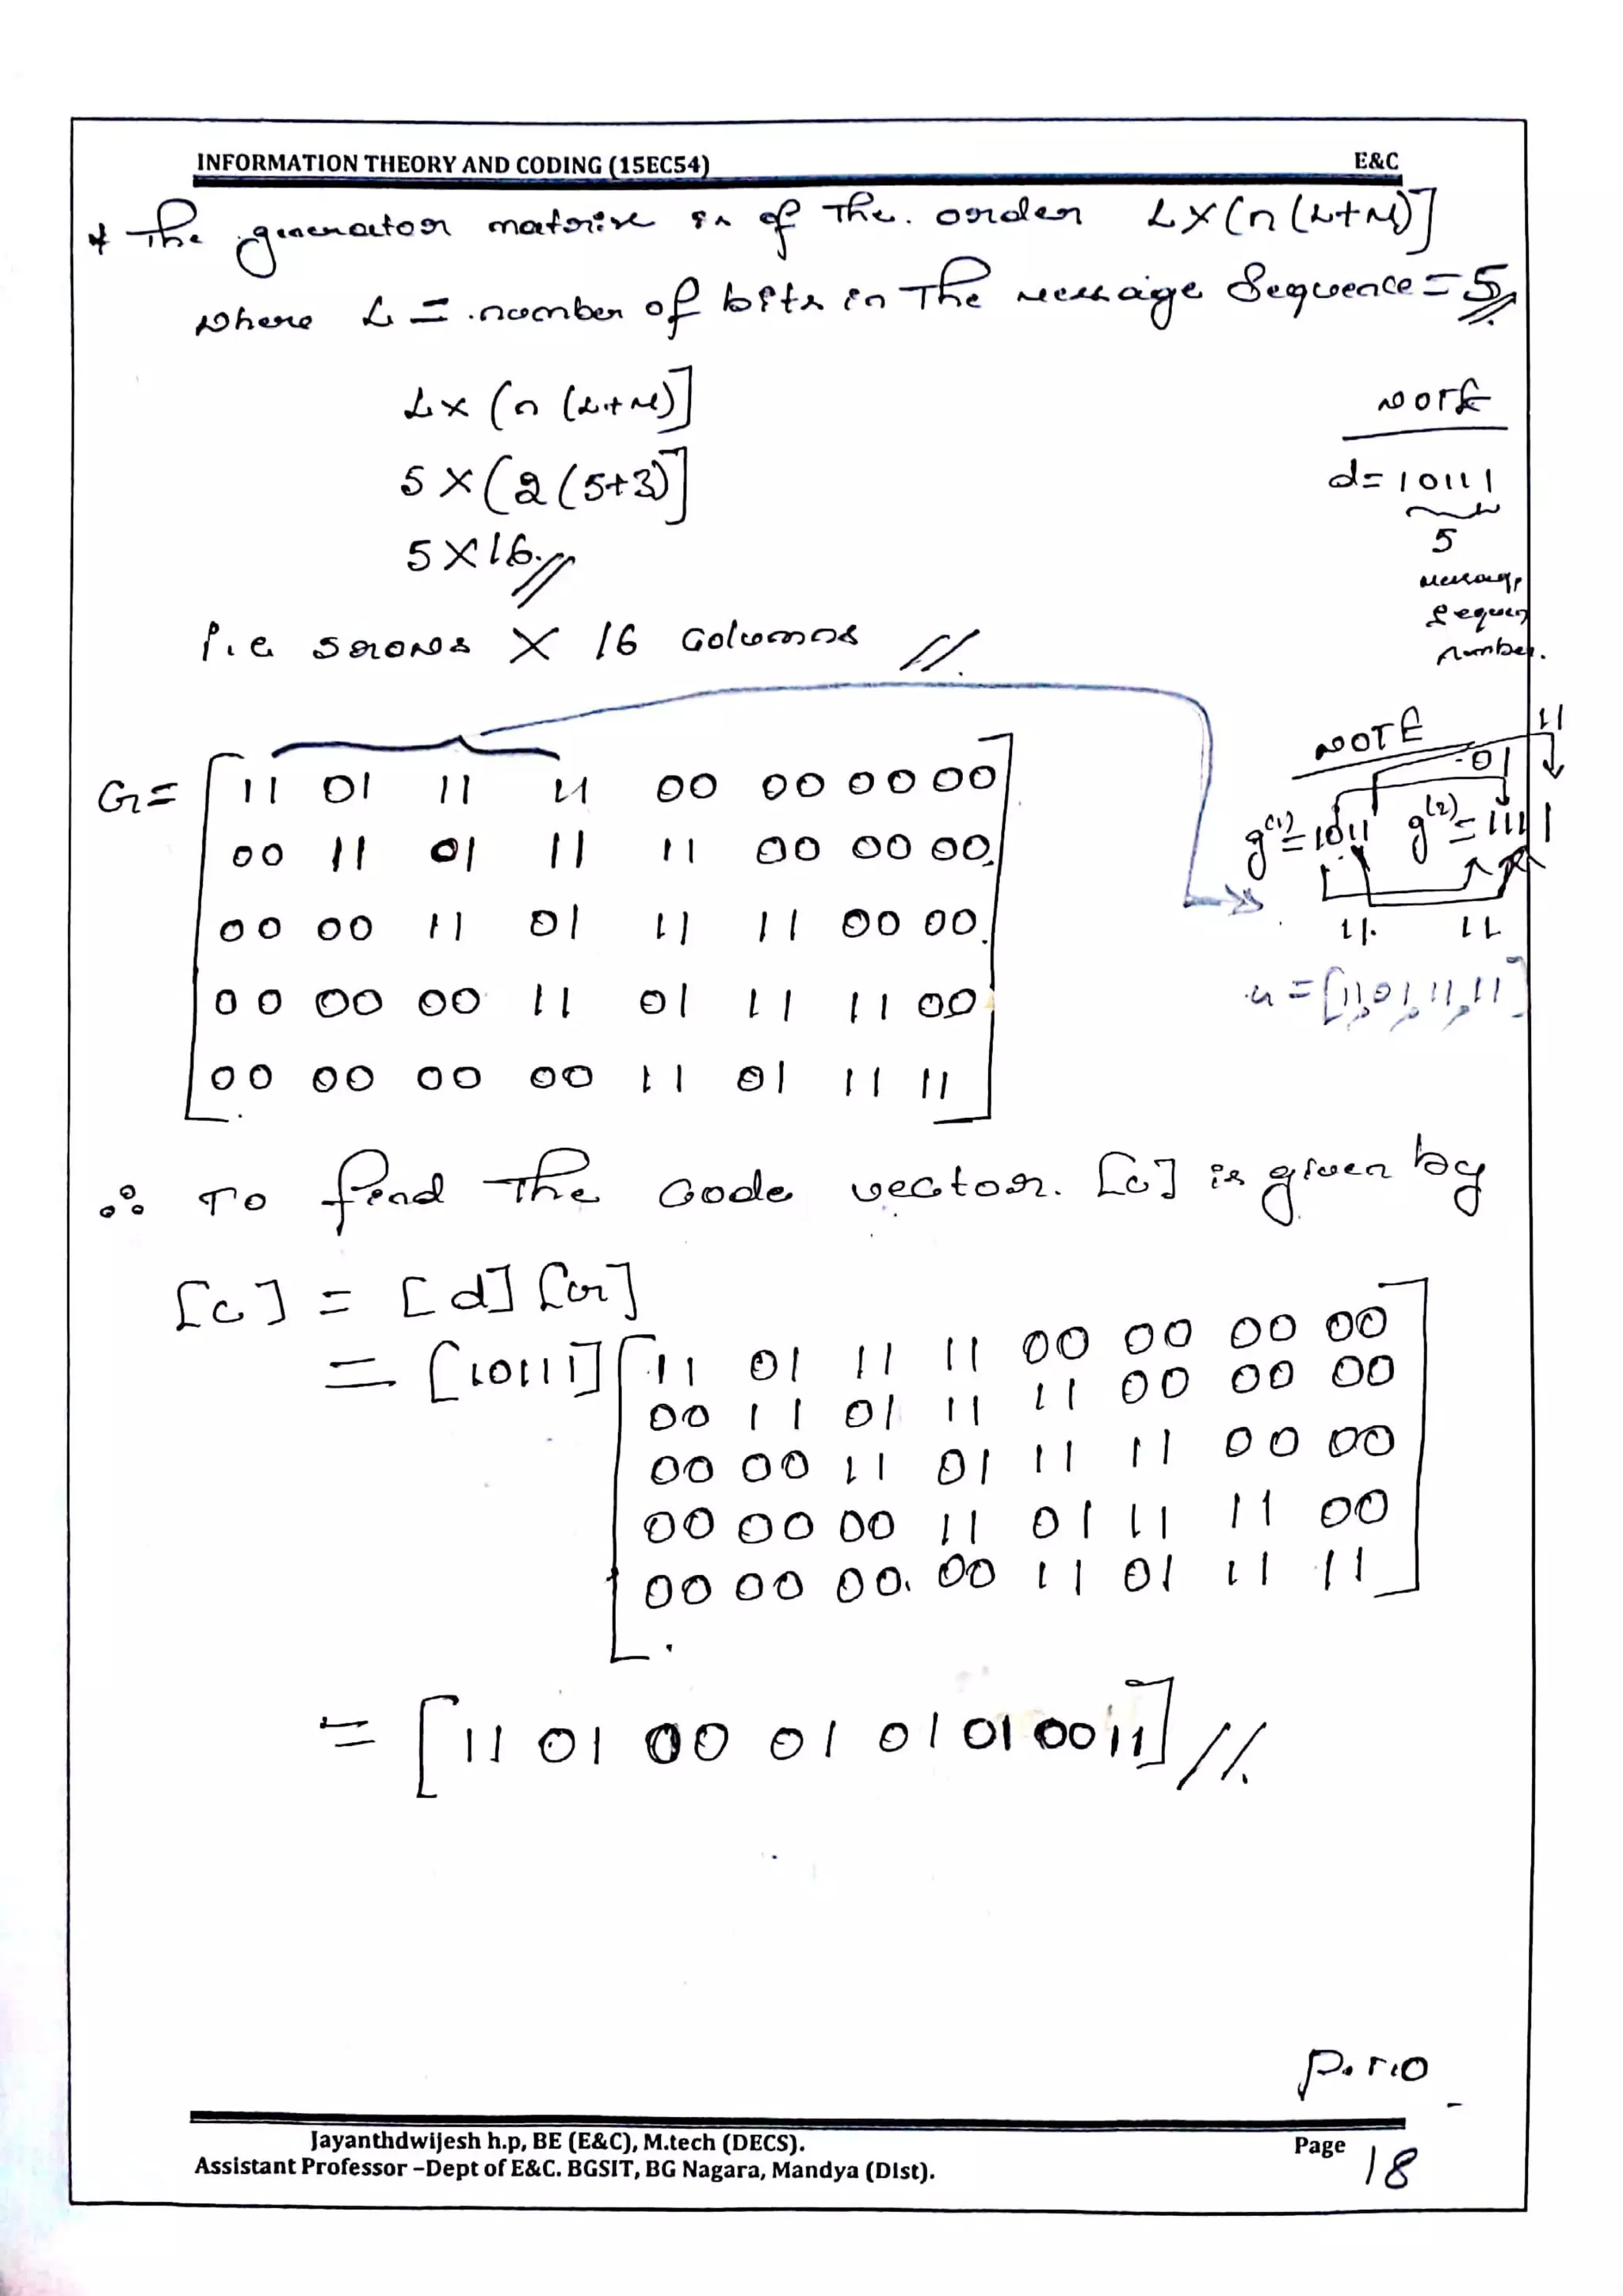 INFORMATION THEORY AND CODING (15EC54) E&C
* The generator matrix is of the order L×[n(L+M)]
where L = number of bits in the message sequence = 5
L×[n(L+M)]
5×[2(5+3)]
5×16
i.e 5 rows × 16 columns
NOTE
d= 10111
5
message
sequen
number.
G= [11 01 11 11 00 00 00 00
00 11 01 11 11 00 00 00
00 00 11 01 11 11 00 00
00 00 00 11 01 11 11 00
00 00 00 00 11 01 11 11]
NOTE
11
01
g(1)= 1011 g(2)= 1111
11. 11
=[11,01,11,11]
∴ To find the code vector. [c] is given by
[c] = [d] [G]
= [10111] [11 01 11 11 00 00 00 00
00 11 01 11 11 00 00 00
00 00 11 01 11 11 00 00
00 00 00 11 01 11 11 00
00 00 00 00 11 01 11 11]
= [11 01 00 01 01 01 00 11]
P.T.O
Jayanthdwijesh h.p, BE (E&C), M.tech (DECS).
Assistant Professor –Dept of E&C. BGSIT, BG Nagara, Mandya (Dist).
Page 18